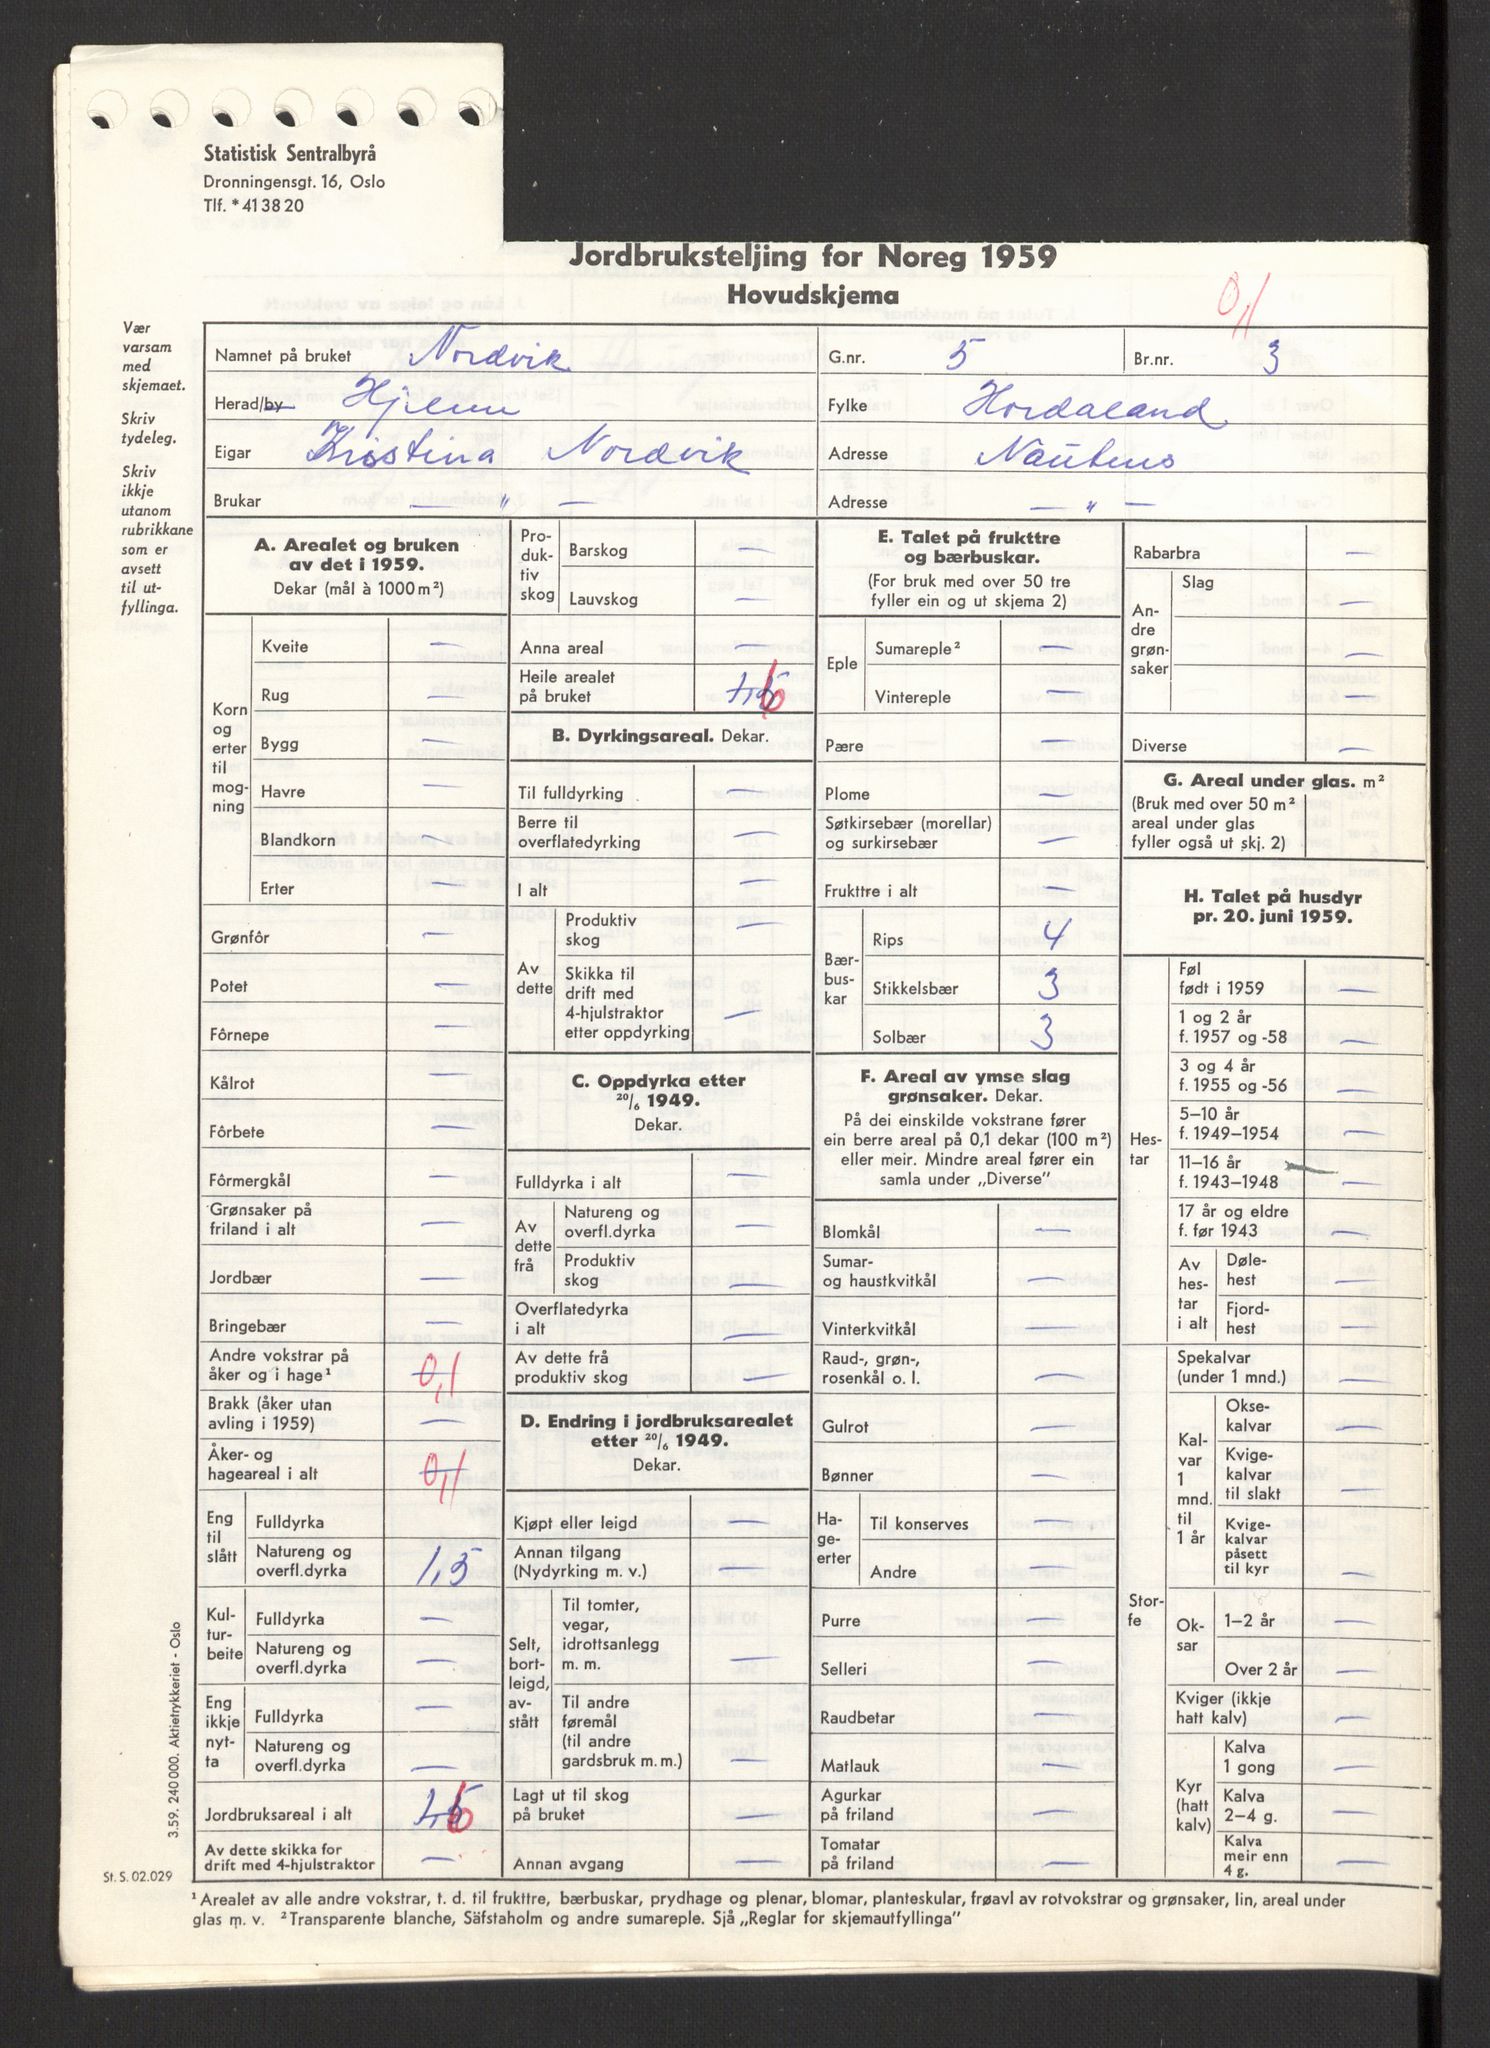 Statistisk Sentralbyrå
Dronningensgt. 16, Oslo
Tlf. *41 38 20
Jordbruksteljing for Noreg 1959
Hovudskjema
0,1
Vær
varsam
med
skjemaet.
Skriv
tydeleg.
Skriv
ikkje
utanom
rubrikkane
som er
avsett
til ut-
fyllinga.
Namnet på bruket Nordvik G.nr. 5 Br.nr. 3
Herad/by Fylke Hordaland
Eigar Kristina Nordvik Adresse
Brukar — „ — Adresse — „ —
A. Arealet og bruken
av det i 1959.
Dekar (mål à 1000 m²)
Korn
og
erter
til
mog-
ning
Kveite —
Rug —
Bygg —
Havre —
Blandkorn —
Erter —
Grønfôr —
Potet —
Fôrnepe —
Kålrot —
Fôrbete —
Fôrmergkål —
Grønsaker på
friland i alt —
Jordbær —
Bringebær —
Andre vokstrar på
åker og i hage¹ 0,1
Brakk (åker utan
avling i 1959) —
Åker- og
hageareal i alt 0,1
Eng
til
slått
Fulldyrka —
Natureng og
overfl.dyrka 1,5
Kul-
tur-
beite
Fulldyrka —
Natureng og
overfl.dyrka —
Eng
ikkje
nyt-
ta
Fulldyrka —
Natureng og
overfl.dyrka —
Jordbruksareal i alt 1,6
Av dette skikka for
drift med 4-hjulstraktor —
Pro-
duk-
tiv
skog
Barskog —
Lauvskog —
Anna areal —
Heile arealet
på bruket 1,6
B. Dyrkingsareal. Dekar.
Til fulldyrking —
Berre til
overflatedyrking —
I alt —
Av
dette
Produktiv
skog —
Skikka til
drift med
4-hjulstraktor
etter oppdyrking —
C. Oppdyrka etter
20/6 1949.
Dekar.
Fulldyrka i alt —
Av
dette
frå
Natureng og
overfl.dyrka —
Produktiv
skog —
Overflatedyrka
i alt —
Av dette frå
produktiv skog —
D. Endring i jordbruksarealet
etter 20/6 1949.
Dekar.
Kjøpt eller leigd —
Annan tilgang
(Nydyrking m. v.) —
Selt,
bort-
leigd,
av-
stått
Til tomter,
vegar,
idrottsanlegg
m. m. —
Til andre
føremål
(til andre
gardsbruk m. m.) —
Lagt ut til skog
på bruket —
Annan avgang —
E. Talet på frukttre
og bærbuskar.
(For bruk med over 50 tre
fyller ein og ut skjema 2)
Eple
Sumareple² —
Vintereple —
Pære —
Plome —
Søtkirsebær (morellar)
og surkirsebær —
Frukttre i alt —
Bær-
bus-
kar
Rips 4
Stikkelsbær 3
Solbær 3
F. Areal av ymse slag
grønsaker. Dekar.
På dei einskilde vokstrane fører
ein berre areal på 0,1 dekar (100 m²)
eller meir. Mindre areal fører ein
samla under „Diverse”
Blomkål —
Sumar-
og haustkvitkål —
Vinterkvitkål —
Raud-, grøn-,
rosenkål o. l. —
Gulrot —
Bønner —
Ha-
ge-
erter
Til konserves —
Andre —
Purre —
Selleri —
Raudbetar —
Matlauk —
Agurkar
på friland —
Tomatar
på friland —
Rabarbra —
An-
dre
grøn-
saker
Slag
—
—
—
Diverse —
G. Areal under glas. m²
(Bruk med over 50 m²
areal under glas
fyller også ut skj. 2) —
H. Talet på husdyr
pr. 20. juni 1959.
Hes-
tar
Føl
født i 1959 —
1 og 2 år
f. 1957 og -58 —
3 og 4 år
f. 1955 og -56 —
5–10 år
f. 1949–1954 —
11–16 år
f. 1943–1948 —
17 år og eldre
f. før 1943 —
Av
hes-
tar
i alt
Døle-
hest —
Fjord-
hest —
Stor-
fe
Spekalvar
(under 1 mnd.) —
Kal-
var
1
mnd.
til
1 år
Okse-
kalvar —
Kvige-
kalvar
til slakt —
Kvige-
kalvar
påsett
til kyr —
Ok-
sar
1–2 år —
Over 2 år —
Kviger (ikkje
hatt kalv) —
Kyr
(hatt
kalv)
Kalva
1 gong —
Kalva
2–4 g. —
Kalva
meir enn
4 g. —
3.59. 240 000. Aktietrykkeriet - Oslo
St. S. 02.029
¹ Arealet av alle andre vokstrar, t. d. til frukttre, bærbuskar, prydhage og plenar, blomar, planteskular, frøavl av rotvokstrar og grønsaker, lin, areal under
glas m. v. ² Transparente blanche, Säfstaholm og andre sumareple. Sjå „Reglar for skjemautfyllinga”